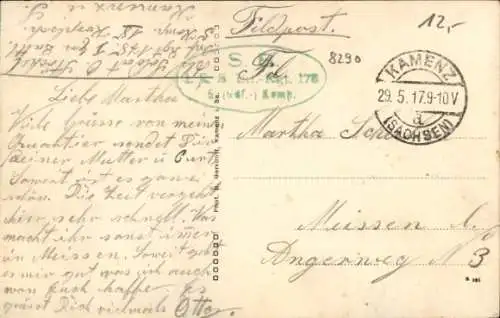 Feldpost.
12,-
8290
S. B.
Inf.-Rgt. 178
Komp.
KAMENZ
29.5.17.9-10V
a
(SACHSEN)
Kamenz i. S.
Liebe Martha
Viele Grüsse von meinem
Quartier sendet Dir
deiner Mutter u. Curt
Soweit ist es ganz
schön. Die Zeit vergeht
hier sehr schnell. Was
macht ihr sonst immer
in Meissen. Soweit geht
es mir gut was ich auch
von Euch hoffe. Es
grüsst Dich vielmals Otto.
Frl.
Martha
Meissen
Angerweg No 3